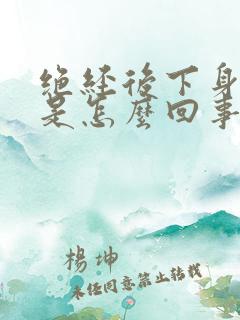 绝经后下身
是怎麼回事
楊坤
未经同意禁止转载